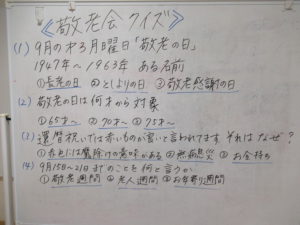 《敬老会クイズ》
(1) 9月の第3月曜日「敬老の日」
1947年〜1963年 ある名前
①長老の日 ②としよりの日 ③敬老感謝の日
(2) 敬老の日は何才から対象
①65才〜 ②70才〜 ③75才〜
(3) 還暦祝いでは赤いものが良いと言われてます それはなぜ?
①赤色には魔除けの意味がある ②無病息災 ③お金持ち
(4) 9月15日〜21日までのことを何と言うか
①敬老週間 ②老人週間 ③お年寄り週間